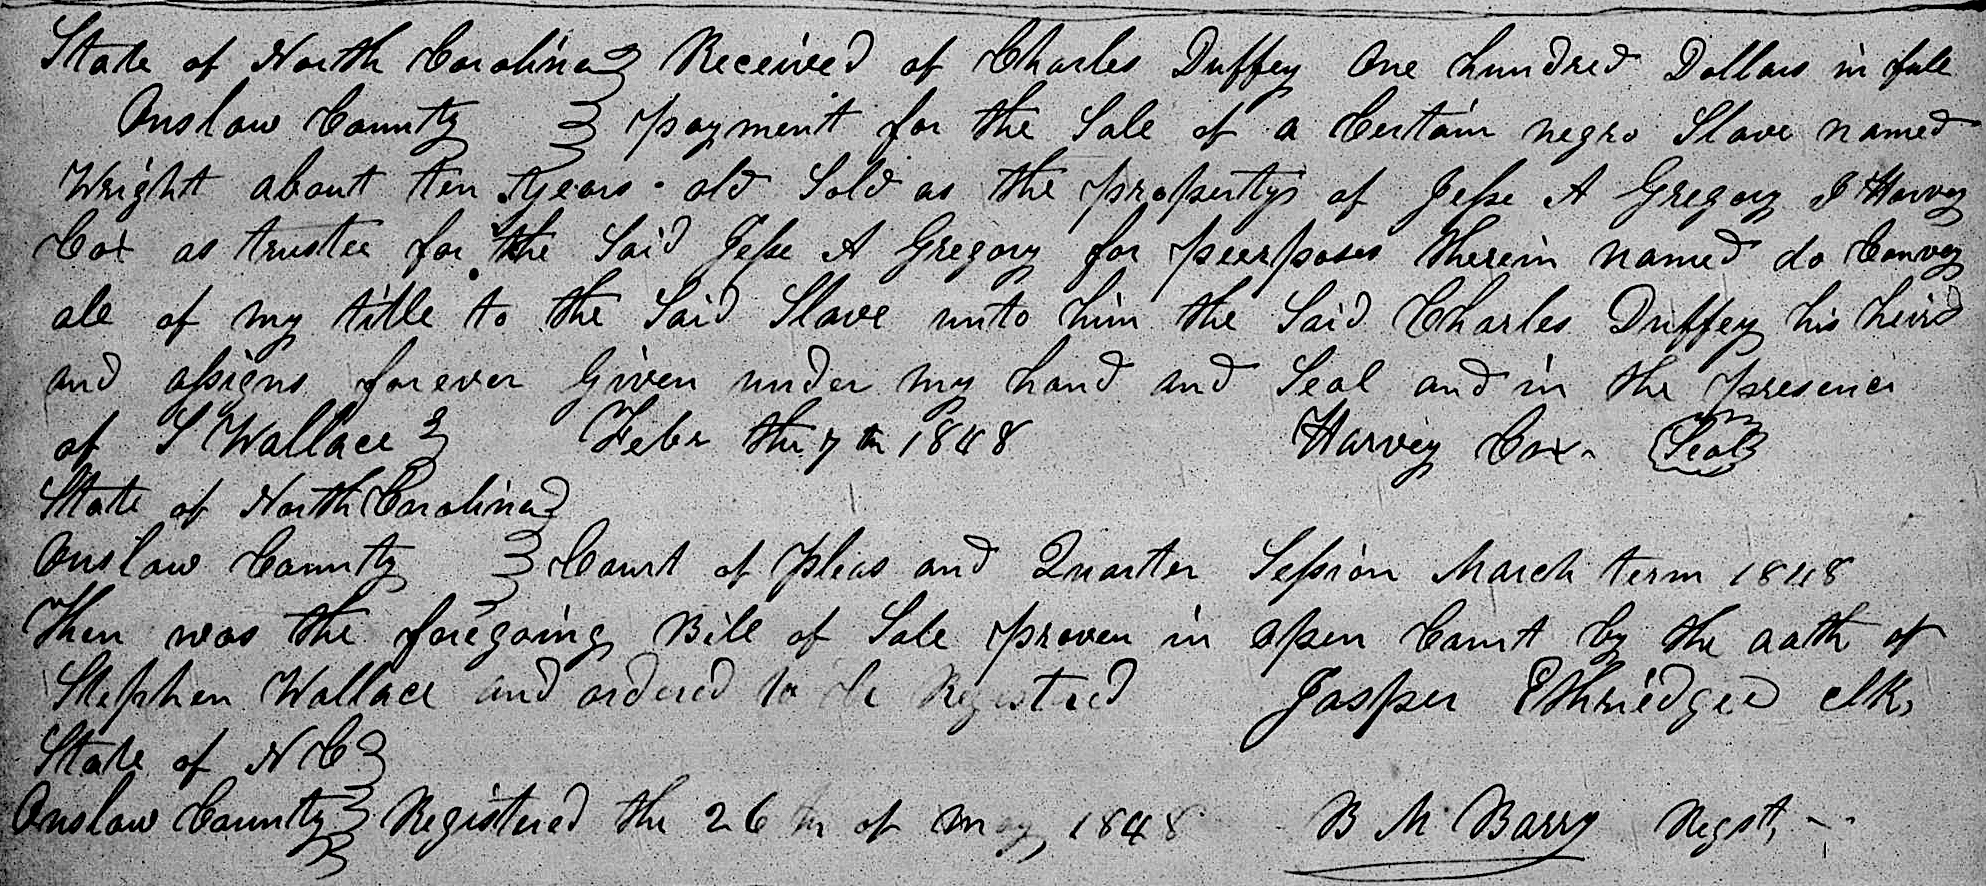 State of North Carolina } Received of Charles Duffey One hundred Dollars in full
Onslow County } payment for the Sale of a Certain negro Slave named
Wright about ten years old Sold as the property of Jesse A Gregory I Harvey
Cox as trustee for the Said Jesse A Gregory for peerposes therein named do Convey
all of my title to the Said Slave unto him the Said Charles Duffey his heirs
and assigns forever Given under my hand and Seal and in the presence
of S Wallace } Febr the 7th 1848 Harvey Cox Seal
State of North Carolina }
Onslow County } Court of Pleas and Quarter Session March term 1848
Then was the foregoing Bill of Sale proven in open Court by the oath of
Stephen Wallace and ordered to be Registered Jasper Ethriedge Clk,
State of N C }
Onslow County } Registered the 26th of May, 1848 B M Barry Regst,